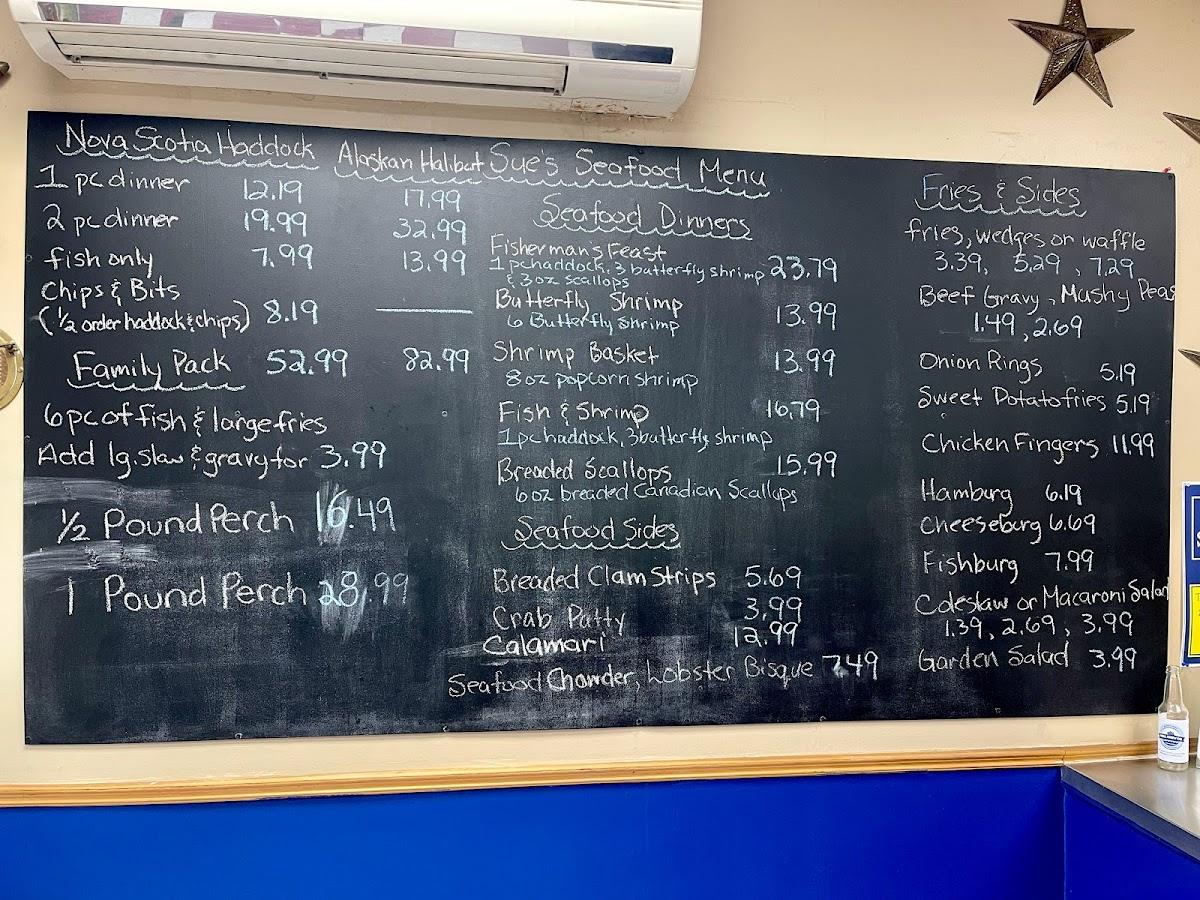 Nova Scotia Haddock Alaskan Halibut
1 pc dinner 12.19 17.99
2 pc dinner 19.99 32.99
fish only 7.99 13.99
Chips & Bits
(½ order haddock & chips) 8.19 ———
Family Pack 52.99 82.99
6 pc of fish & large fries
Add lg. slaw & gravy for 3.99
½ Pound Perch 16.49
1 Pound Perch 28.99
Sue's Seafood Menu
Seafood Dinners
Fishermans Feast 23.79
1 pc haddock, 3 butterfly shrimp
& 3 oz scallops
Butterfly Shrimp 13.99
6 Butterfly Shrimp
Shrimp Basket 13.99
8 oz popcorn shrimp
Fish & Shrimp 16.79
1 pc haddock, 3 butterfly shrimp
Breaded Scallops 15.99
6 oz breaded Canadian Scallops
Seafood Sides
Breaded Clam Strips 5.69
Crab Patty 3.99
Calamari 12.99
Seafood Chowder, Lobster Bisque 7.49
Fries & Sides
fries, wedges or waffle
3.39, 5.29, 7.29
Beef Gravy, Mushy Peas
1.49, 2.69
Onion Rings 5.19
Sweet Potato fries 5.19
Chicken Fingers 11.99
Hamburg 6.19
Cheeseburg 6.69
Fishburg 7.99
Coleslaw or Macaroni Salad
1.39, 2.69, 3.99
Garden Salad 3.99